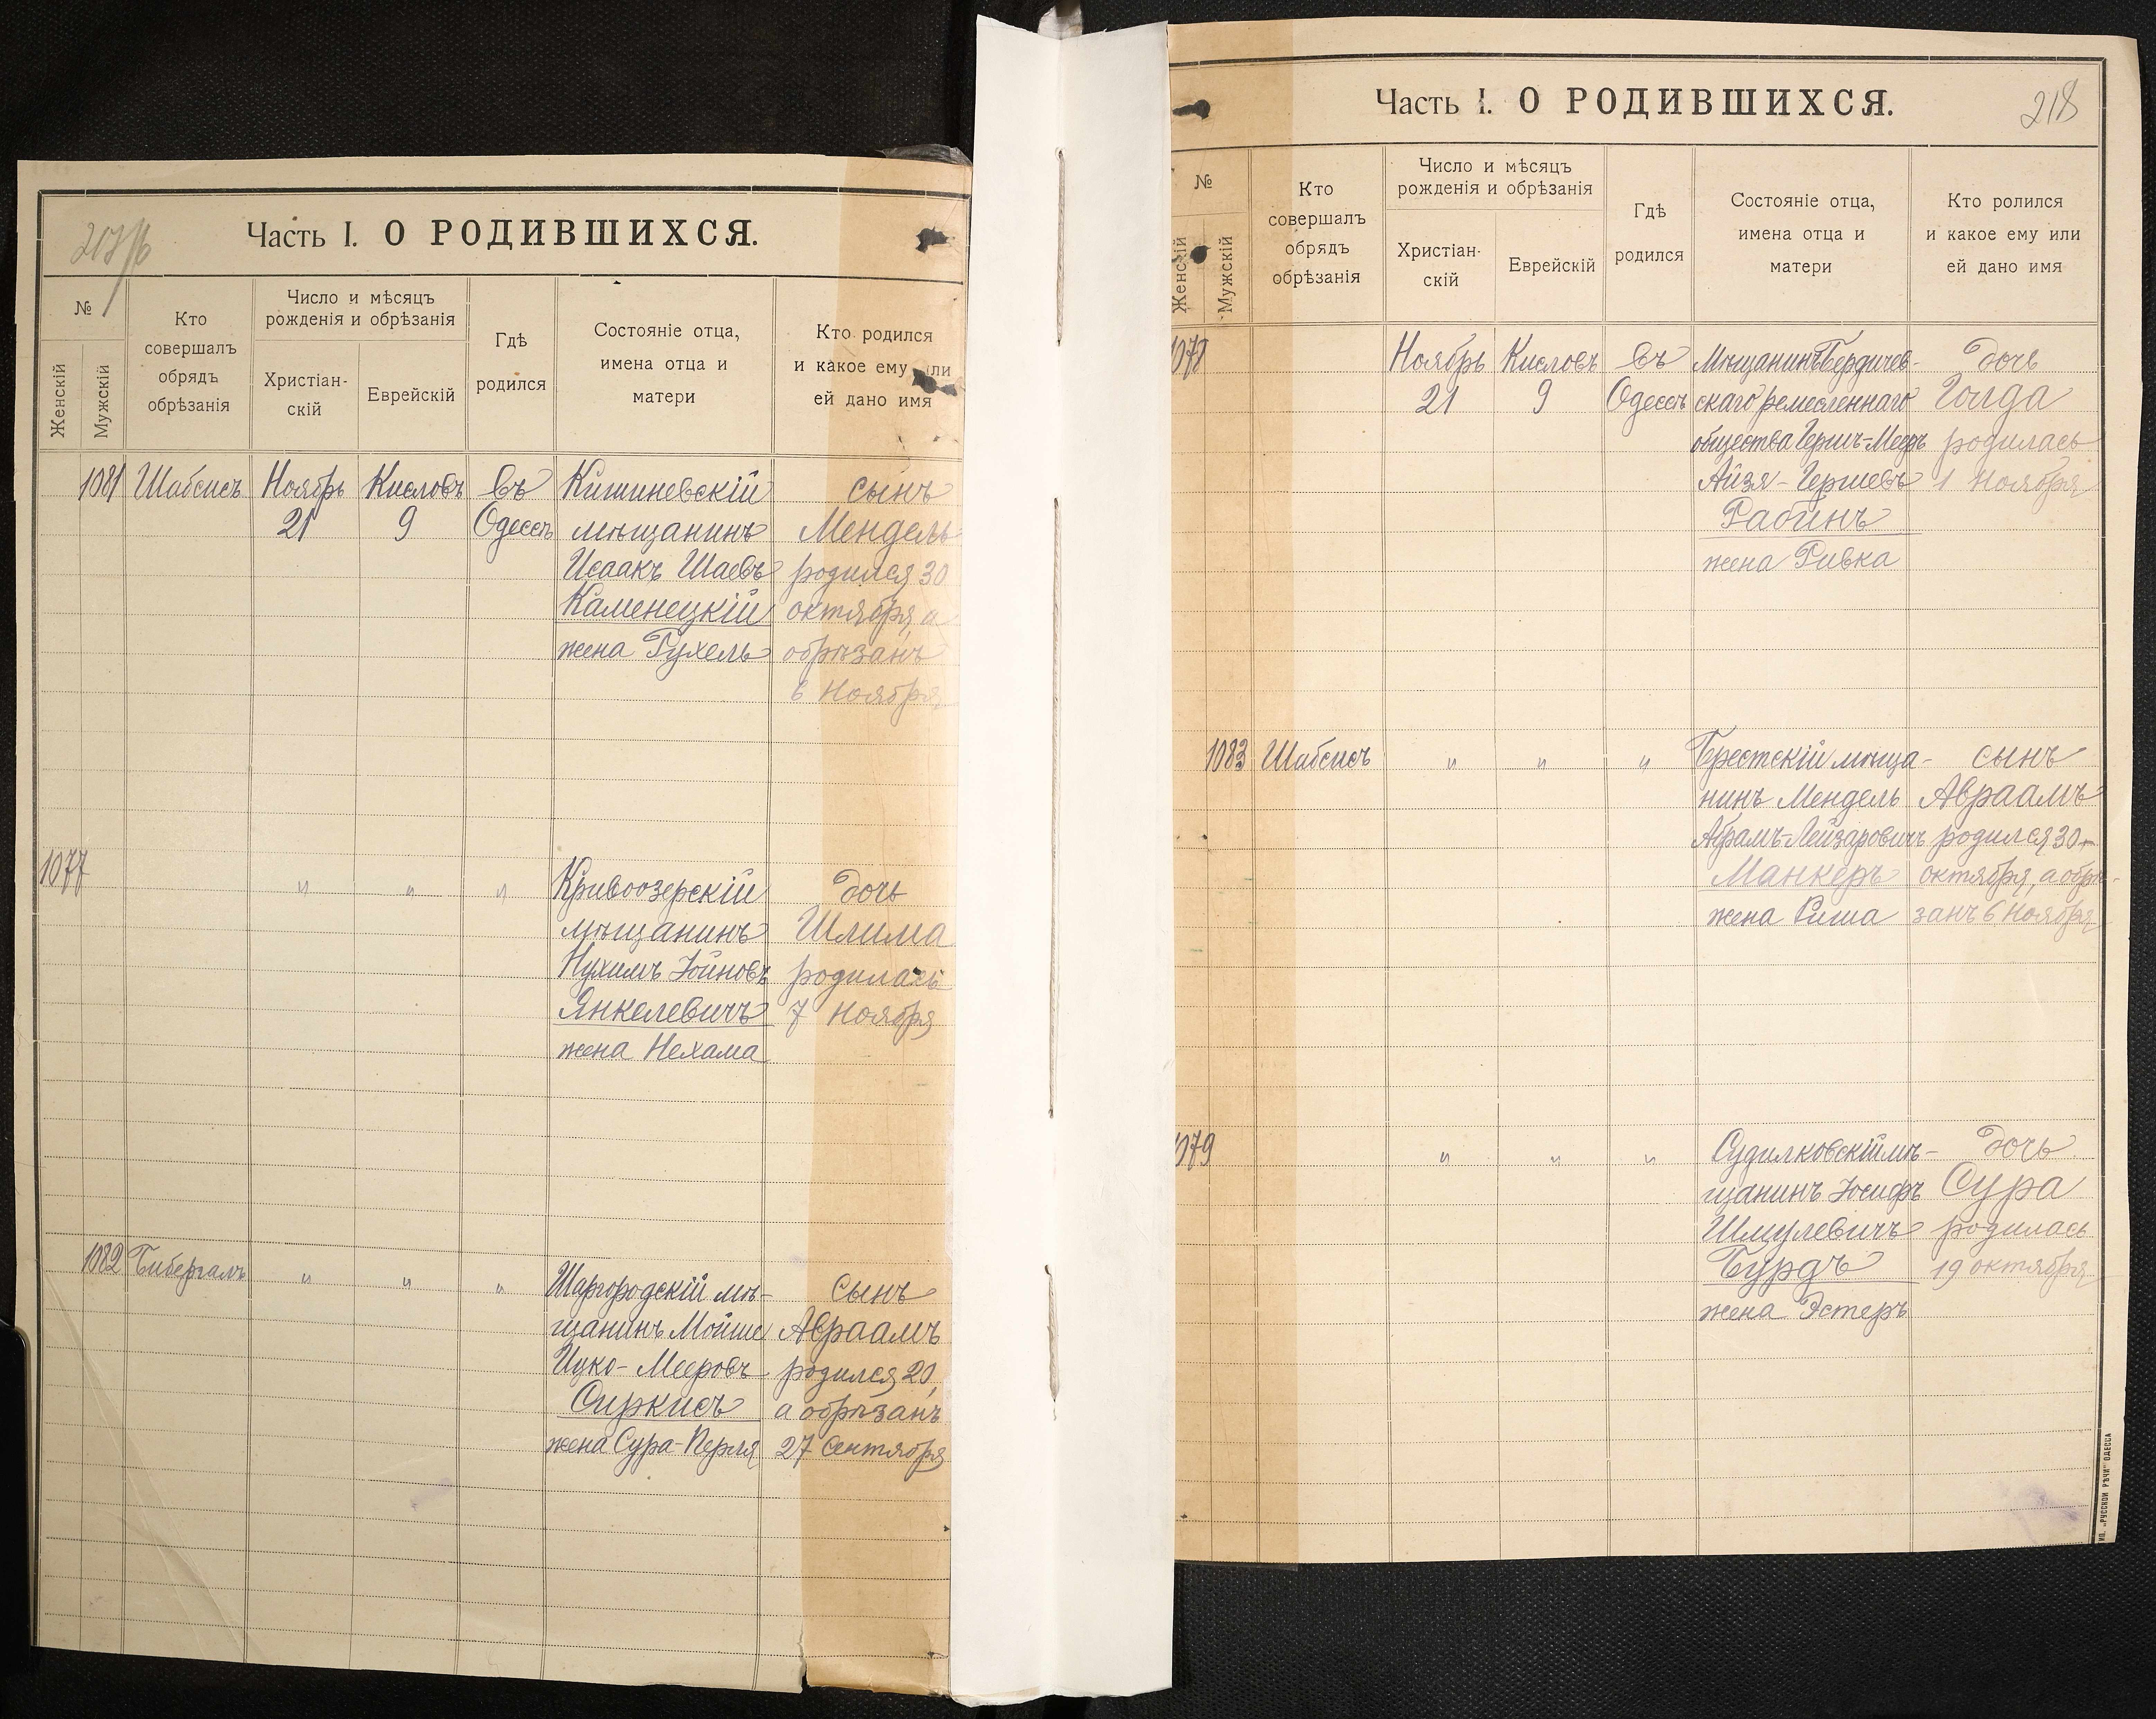 217/б
Часть I. О РОДИВШИХСЯ.
№
Женскій
Мужскій
Кто
совершалъ
обрядъ
обрѣзанія
Число и мѣсяцъ
рожденія и обрѣзанія
Христіан-
скій
Еврейскій
Гдѣ
родился
Состояніе отца,
имена отца и
матери
Кто родился
и какое ему или
ей дано имя
1081 Шабсисъ Ноябрь Кисловъ въ Кишиневскій сынъ
21 9 Одессѣ мѣщанинъ Мендель
Исаакъ Шаевъ родился 30
Каменецкій октября, а
жена Рухель обрѣзанъ
6 Ноября
1077 " " " Кривоозерскій дочь
мѣщанинъ Шлима
Нухимъ Іойновъ родилась
Янкелевичъ 7 Ноября
жена Нехама
1082 Бибергалъ " " " Шаргородскій мѣ- сынъ
щанинъ Мойше Авраамъ
Ицко-Мееровъ родился 20,
Сиркисъ а обрѣзанъ
жена Сура-Перля 27 Сентября
218
Часть I. О РОДИВШИХСЯ.
№
Женскій
Мужскій
Кто
совершалъ
обрядъ
обрѣзанія
Число и мѣсяцъ
рожденія и обрѣзанія
Христіан-
скій
Еврейскій
Гдѣ
родился
Состояніе отца,
имена отца и
матери
Кто ролился
и какое ему или
ей дано имя
1078 Ноябрь Кисловъ въ Мѣщанинъ Бердичев- дочь
21 9 Одессѣ скаго ремесленнаго Голда
общества Герш-Мееръ родилась
Айзя-Гершевъ 1 Ноября
Рабинъ
жена Ривка
1083 Шабсисъ " " " Брестскій мѣща- сынъ
нинъ Мендель Авраамъ
Абрамъ-Лейзаровичъ родился 30
Манкеръ октября, а обрѣ-
жена Риша занъ 6 Ноября
1079 " " " Судилковскій мѣ- дочь
щанинъ Іосифъ Сура
Шмулевичъ родилась
Бурдъ 19 октября
жена Эстеръ
ТИП. „РУССКОЙ РѢЧИ" ОДЕССА